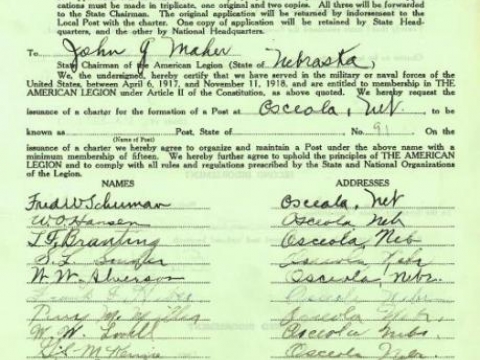 cations must be made in triplicate, one original and two copies. All three will be forwarded
to the State Chairman. The original application will be returned by indorsement to the
Local Post with the charter. One copy of application will be retained by State Head-
quarters, and the other by National Headquarters.
To John G Maher
State Chairman of the American Legion (State of Nebraska,
We, the undersigned, hereby certify that we have served in the military or naval forces of the
United States, between April 6, 1917, and November 11, 1918, and are entitled to membership in THE
AMERICAN LEGION under Article II of the Constitution, as above quoted. We hereby request the
issuance of a charter for the formation of a Post at Osceola, Neb to be
known as Post, State of No. 91 On the
(Name of Post)
issuance of a charter we hereby agree to organize and maintain a Post under the above name with a
minimum membership of fifteen. We hereby further agree to uphold the principles of THE AMERICAN
LEGION and to comply with all rules and regulations prescribed by the State and National Organizations
of the Legion.
NAMES ADDRESSES
Fred W Schuman Osceola, Neb
W. O. Hansen Osceola Neb
T. F. Branting Osceola, Neb
S. L. Osceola Nebr
W. W. Alverson Osceola, Nebr.
Frank Osceola
Osceola Nebr.
W. W. Lovell Osceola Nebr.
McKenzie Osceola Nebr.